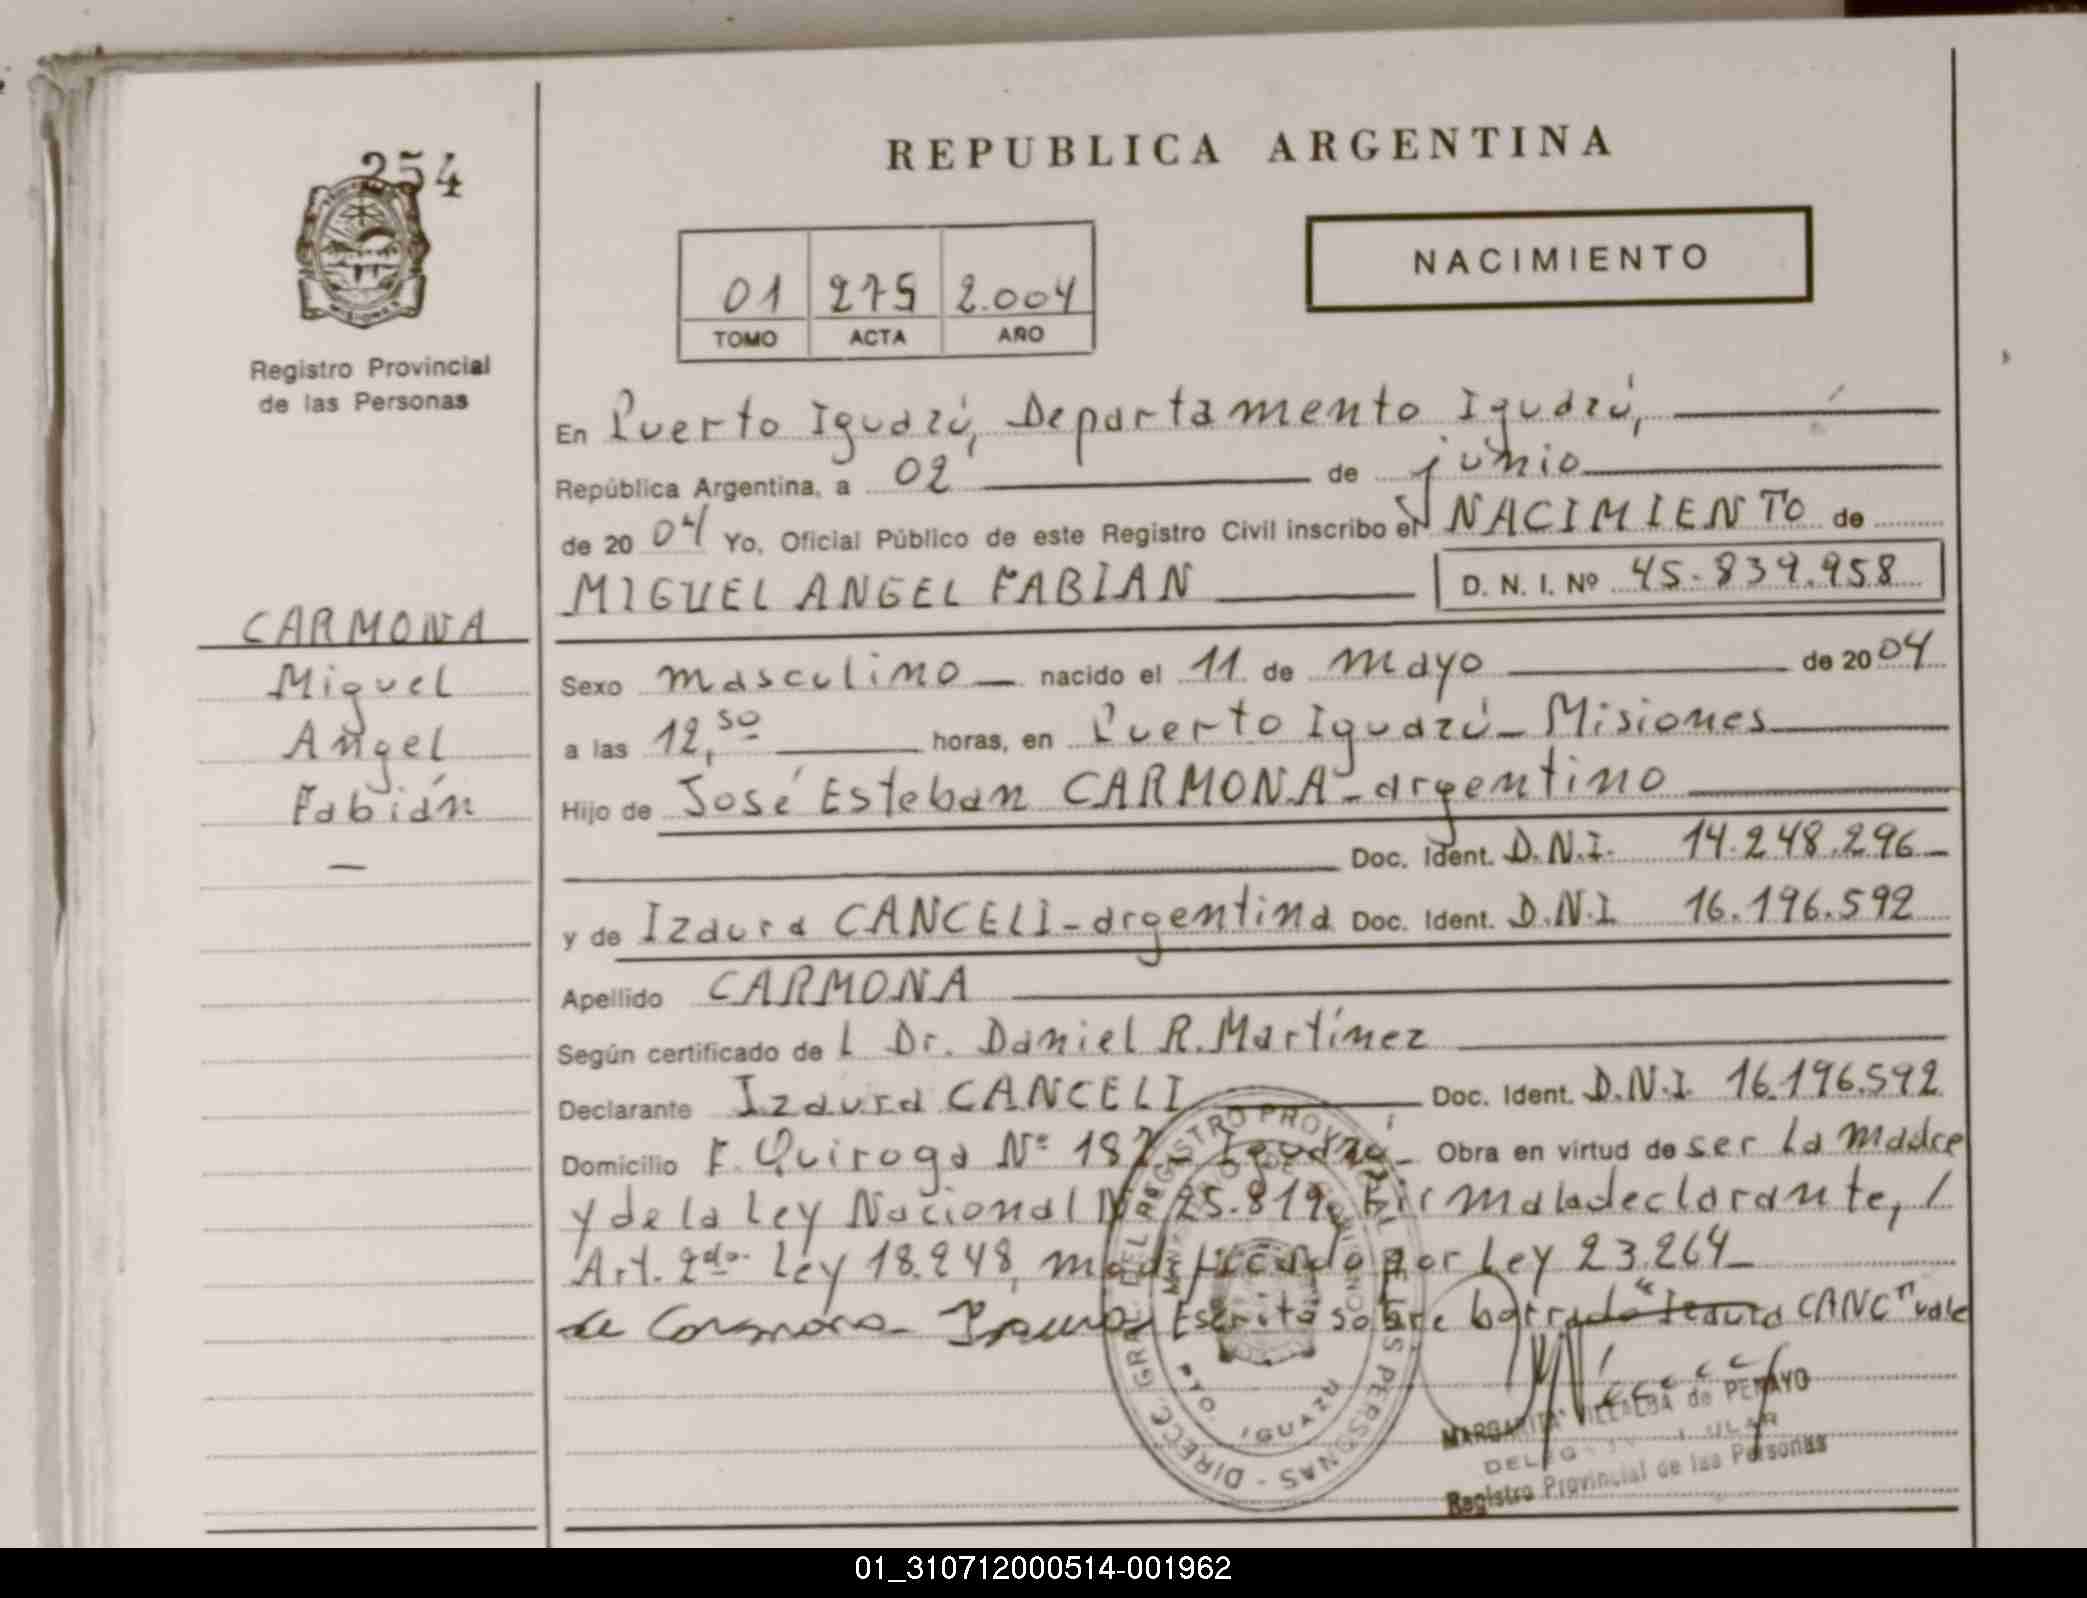 254
REPUBLICA ARGENTINA
NACIMIENTO
01 275 2.004
TOMO ACTA AÑO
Registro Provincial
de las Personas
En Puerto Iguazú, Departamento Iguazú,
República Argentina, a 02 de junio
de 2004 Yo, Oficial Público de este Registro Civil inscribo el NACIMIENTO de
MIGUEL ANGEL FABIAN D. N. I. Nº 45.839.958
CARMONA
Miguel
Angel
Fabián
Sexo masculino nacido el 11 de mayo de 2004
a las 12,50 horas, en Puerto Iguazú - Misiones
Hijo de José Esteban CARMONA - argentino
Doc. Ident. D.N.I. 14.248.296
y de Izaura CANCELI - argentina Doc. Ident. D.N.I 16.196.592
Apellido CARMONA
Según certificado de l Dr. Daniel R. Martínez
Declarante Izaura CANCELI Doc. Ident. D.N.I. 16.196.592
Domicilio F. Quiroga Nº Iguazú - Obra en virtud de ser la madre
y de la Ley Nacional Nº 25.819, Firma la declarante, /
Art. 2do. Ley 18.248, modificado por Ley 23.264
de Carmona Izaura Escrito sobre borrado "Izaura CANC" vale
DIRECC. GRAL. DEL REGISTRO PROVINCIAL DE LAS PERSONAS
PTO. IGUAZU
MARGARITA VILLALBA de PENAYO
Registro Provincial de las Personas
01_310712000514-001962